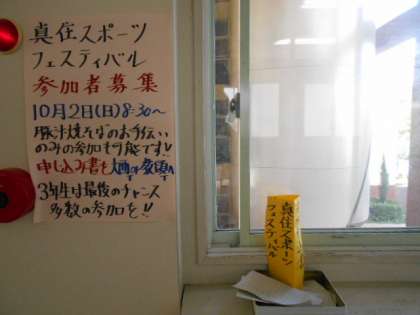 真住スポーツ
フェスティバル
参加者募集
10月2日(日)8:30〜
豚汁焼そばのお手伝い
のみの参加も可能です!!
申し込み書も
3年生は最後のチャンス
多数の参加を!!
真住スポーツ
フェスティバル